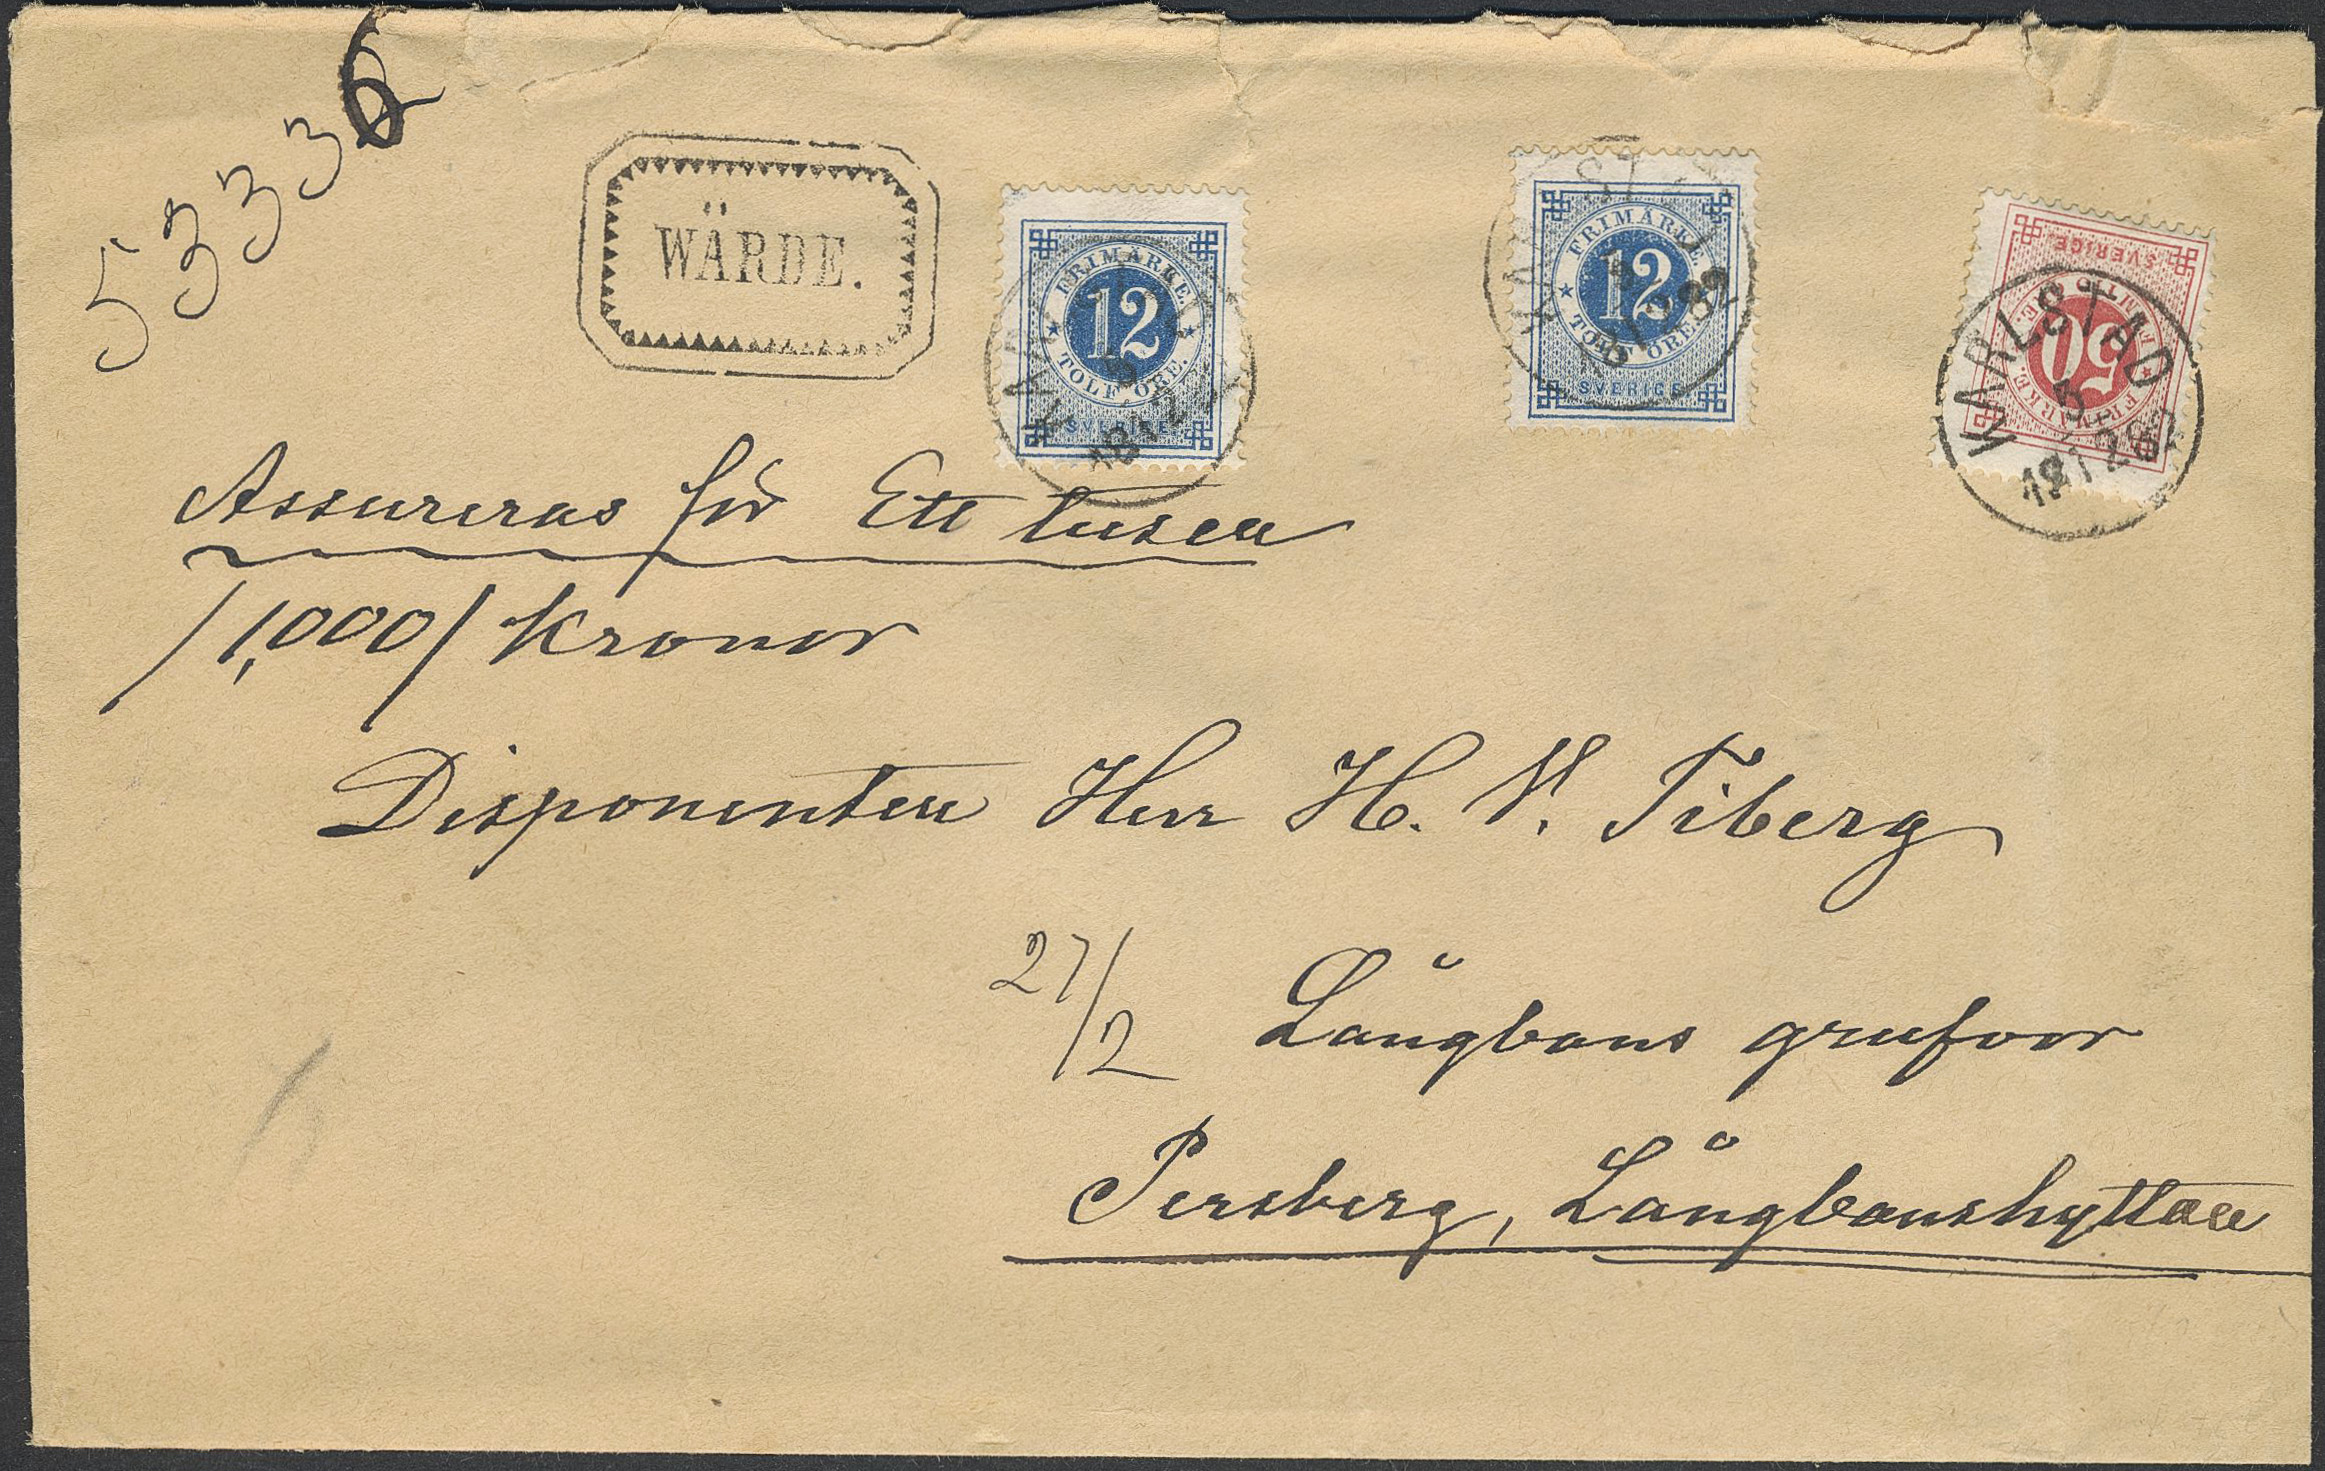 53336
WÄRDE.
FRIMÄRKE.
12
TOLF ÖRE.
SVERIGE
FRIMÄRKE.
12
TOLF ÖRE.
SVERIGE
SVERIGE.
50
FRIMÄRKE.
KARLSTAD
5
Assureras för Ett tusen
/1,000/ Kronor
Disponenten Herr H. V. Tiberg
27/2
Långbans grufvor
Persberg, Långbanshyttan